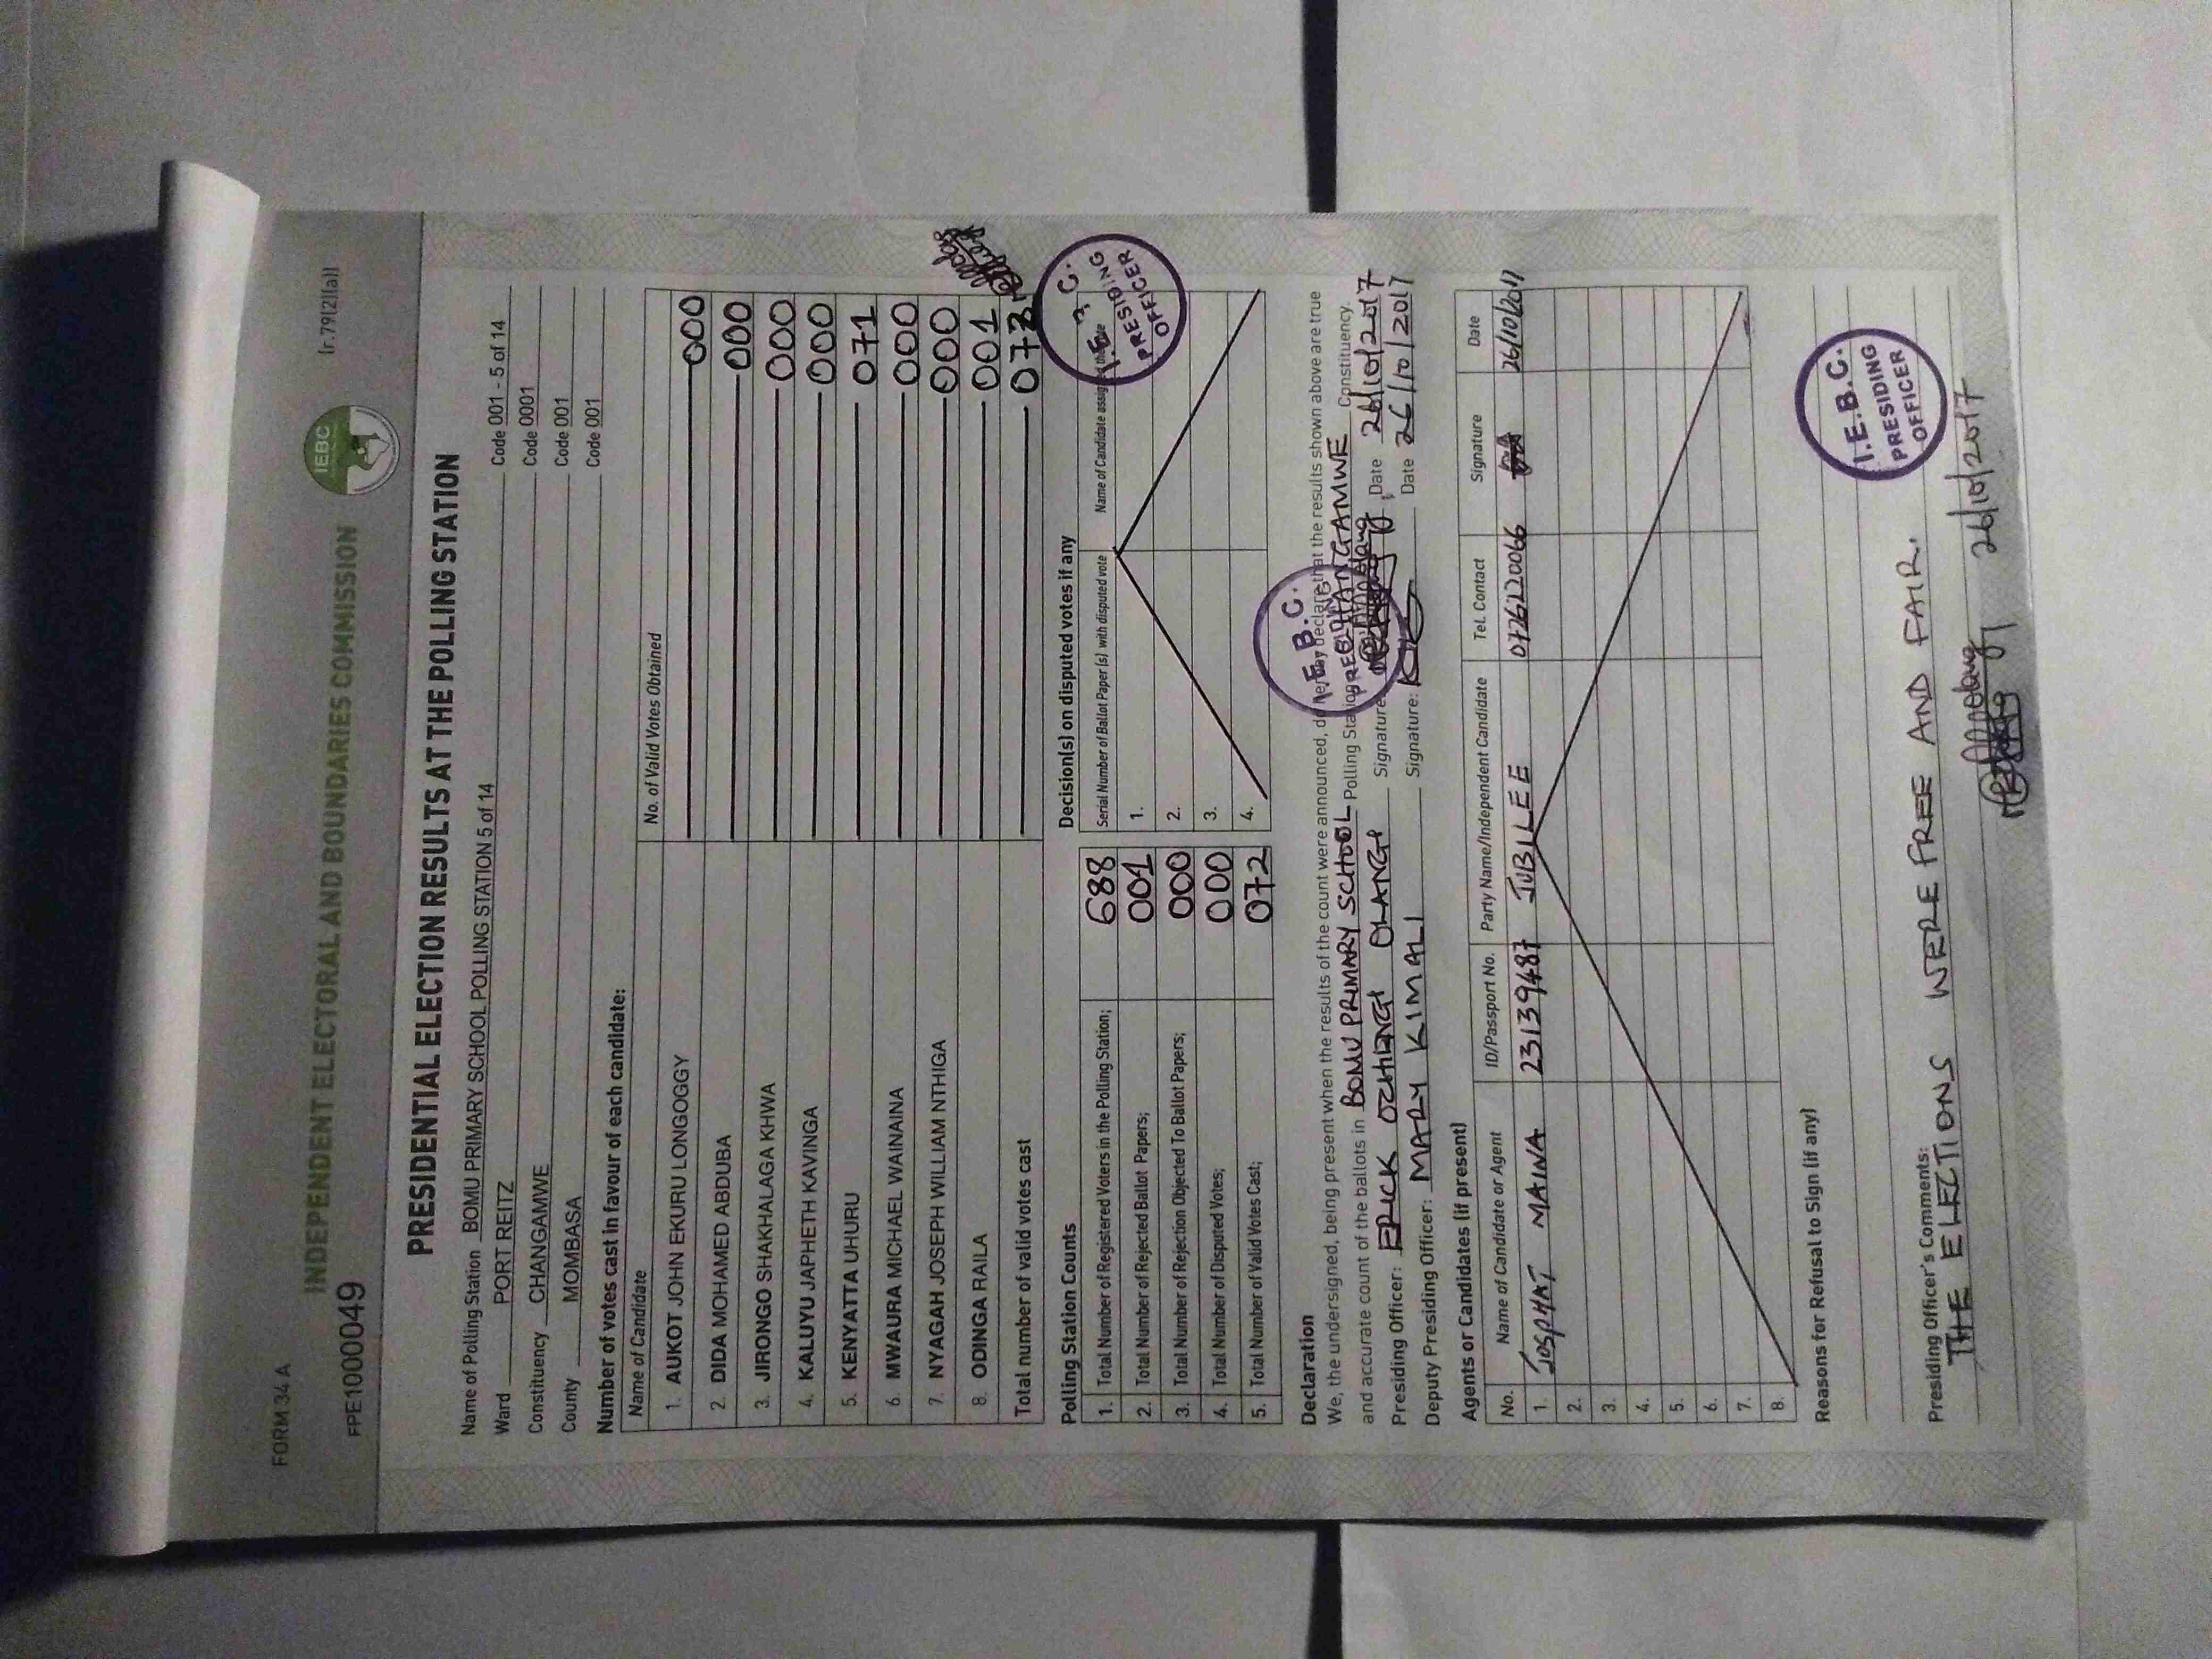 FORM 34 A
(r.79(2)(a))
INDEPENDENT ELECTORAL AND BOUNDARIES COMMISSION
IEBC
FPE1000049
PRESIDENTIAL ELECTION RESULTS AT THE POLLING STATION
Name of Polling Station BOMU PRIMARY SCHOOL POLLING STATION 5 of 14 Code 001 - 5 of 14
Ward PORT REITZ Code 0001
Constituency CHANGAMWE Code 001
County MOMBASA Code 001
Number of votes cast in favour of each candidate:
Name of Candidate No. of Valid Votes Obtained
1. AUKOT JOHN EKURU LONGOGGY 000
2. DIDA MOHAMED ABDUBA 000
3. JIRONGO SHAKHALAGA KHWA 000
4. KALUYU JAPHETH KAVINGA 000
5. KENYATTA UHURU 071
6. MWAURA MICHAEL WAINAINA 000
7. NYAGAH JOSEPH WILLIAM NTHIGA 000
8. ODINGA RAILA 001
Total number of valid votes cast
Polling Station Counts
1. Total Number of Registered Voters in the Polling Station; 688
2. Total Number of Rejected Ballot Papers; 001
3. Total Number of Rejection Objected To Ballot Papers; 000
4. Total Number of Disputed Votes; 000
5. Total Number of Valid Votes Cast; 072
Decision(s) on disputed votes if any
Serial Number of Ballot Paper (s) with disputed vote Name of Candidate
1.
2.
3.
4.
I.E.B.C. PRESIDING OFFICER
Declaration
We, the undersigned, being present when the results of the count were announced, do hereby declare that the results shown above are true
and accurate count of the ballots in BOMU PRIMARY SCHOOL Polling Station CHANGAMWE Constituency.
Presiding Officer: ERICK OCHIENG OLANG Signature: Date 26/10/2017
Deputy Presiding Officer: MARY KIMALI Signature: Date 26/10/2017
I.E.B.C.
Agents or Candidates (if present)
No. Name of Candidate or Agent ID/Passport No. Party Name/Independent Candidate Tel. Contact Signature Date
1. JOSPHAT MAINA 23139487 JUBILEE 0726220066 26/10/2017
2.
3.
4.
5.
6.
7.
8.
Reasons for Refusal to Sign (if any)
I.E.B.C. PRESIDING OFFICER
Presiding Officer's Comments:
THE ELECTIONS WERE FREE AND FAIR.
26/10/2017